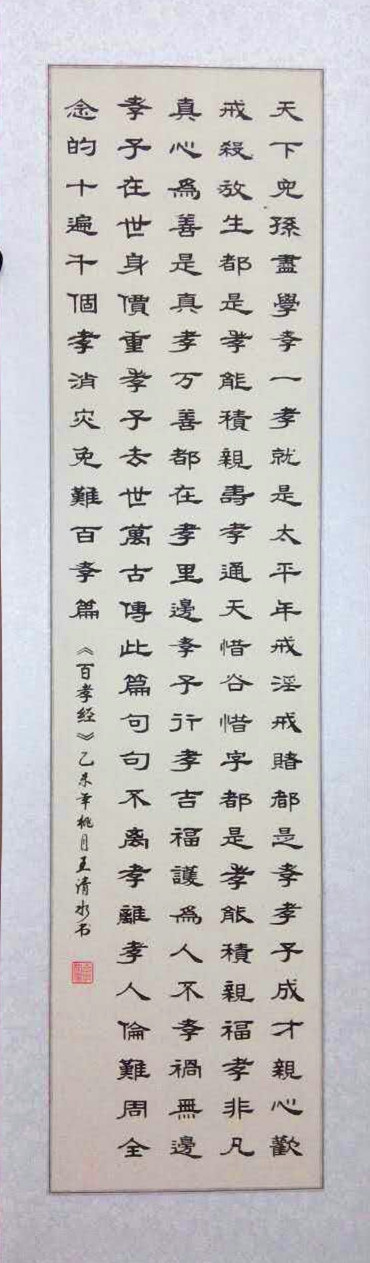 天下兒孫盡學孝一孝就是太平年戒淫戒賭都是孝孝子成才親心歡
戒殺放生都是孝能積親壽孝通天惜谷惜字都是孝能積親福孝非凡
真心爲善是真孝万善都在孝里邊孝子行孝吉福護爲人不孝禍無邊
孝子在世身價重孝子去世萬古傳此篇句句不离孝離孝人倫難周全
念的十遍千個孝消灾免難百孝篇《百孝经》乙未年桃月王清水